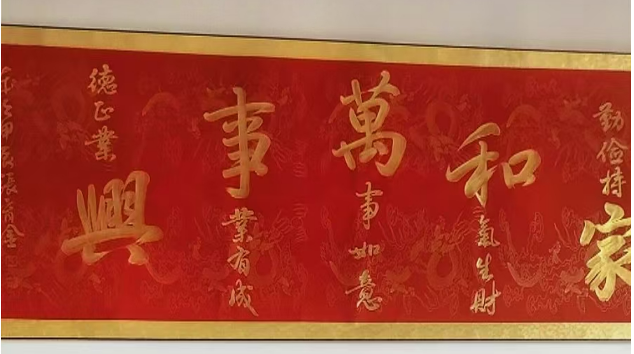 勤儉持家
和氣生財
萬事如意
事業有成
德正業興